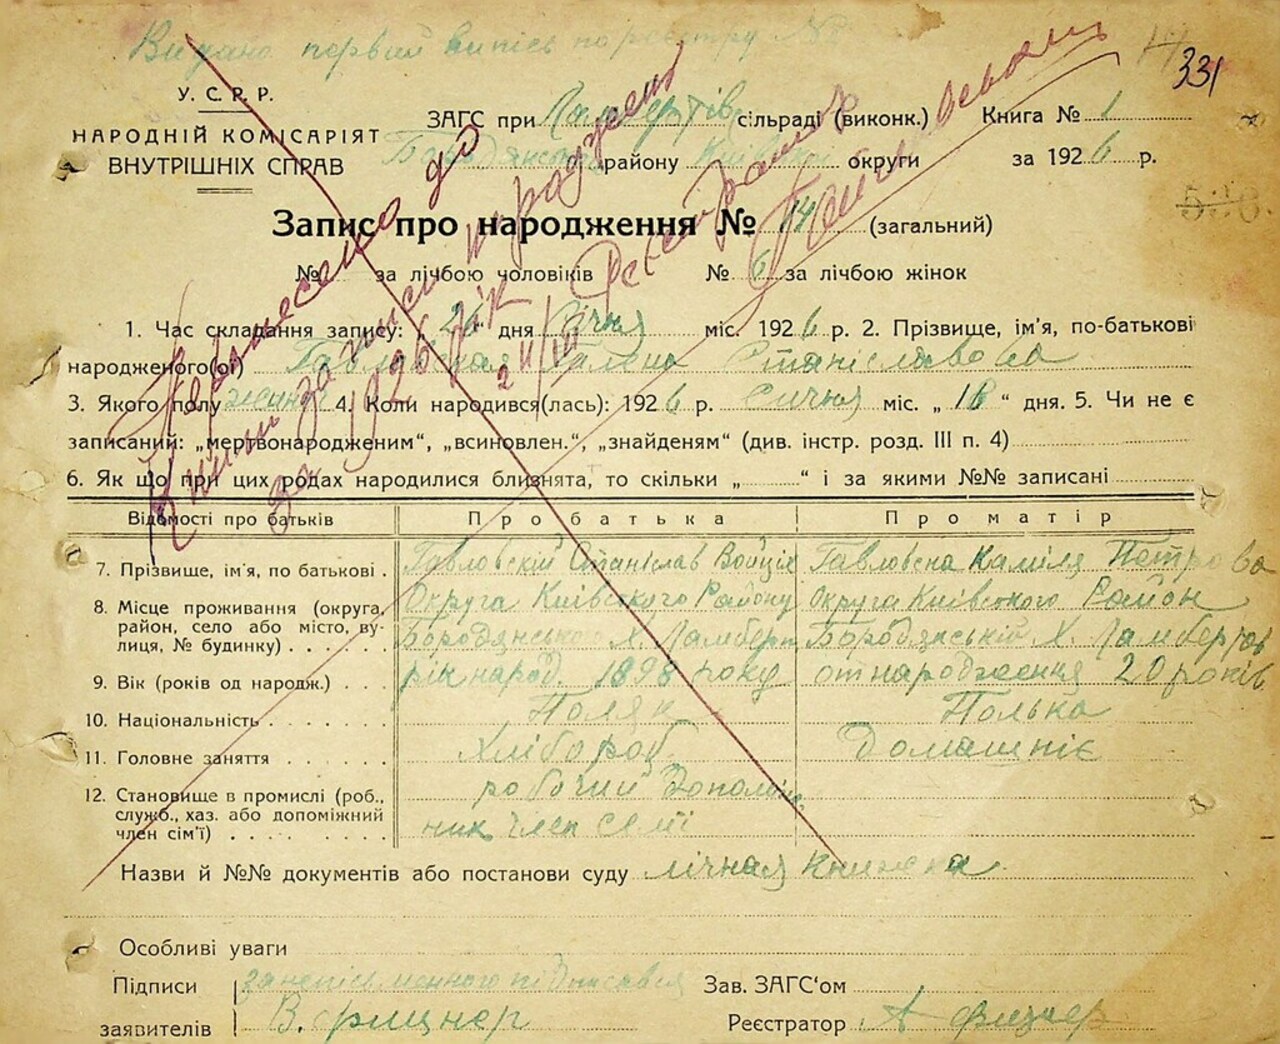 Видано первий випісь по реєстру №
331
У. С. Р. Р.
НАРОДНІЙ КОМІСАРІЯТ
ВНУТРІШНІХ СПРАВ
ЗАГС при Ламбертів сільраді (виконк.) Книга № 1
Бородянского району Київскої округи за 1926 р.
Запис про народження № 14 (загальний)
№ за лічбою чоловіків № 6 за лічбою жінок
1. Час складання запису: „26“ дня Січня міс. 1926 р. 2. Прізвище, ім'я, по-батькові
народженого(ої) Гавловская Галена Станіславова
3. Якого полу жиноч 4. Коли народився(лась): 1926 р. Сичня міс. „18“ дня. 5. Чи не є
записаний: „мертвонародженим“, „всиновлен.“, „знайденям“ (див. інстр. розд. III п. 4)
6. Як що при цих родах народилися близнята, то скільки „ “ і за якими №№ записані
Перенесено до
Книги за запись народжень
за 1926 рік
Відомості про батьків Про батька Про матір
7. Прізвище, ім'я, по батькові . Гавловский Станіслав Войціх Гавловска Каміля Петрова
8. Місце проживання (округа, Округа Київского Району Округа Київского Район
район, село або місто, ву- Бородянсько Х. Ламберт Бородянській Х. Ламбертов
лиця, № будинку) . . . . . .
9. Вік (років од народж.) . . . рік народ. 1898 року от народження 20 років
10. Національність . . . . . . . Поляк Полька
11. Головне заняття . . . . . . Хлібороб Домашніє
12. Становище в промислі (роб., робочий Дополни
служб., хаз. або допоміжний
член сім'ї) . . . . . . . . ник член семї
Назви й №№ документів або постанови суду лічная книжка
Особливі уваги
Підписи за неписьменного підписався Зав. ЗАГС'ом
заявителів В. Фицнер Реєстратор А Фицнер